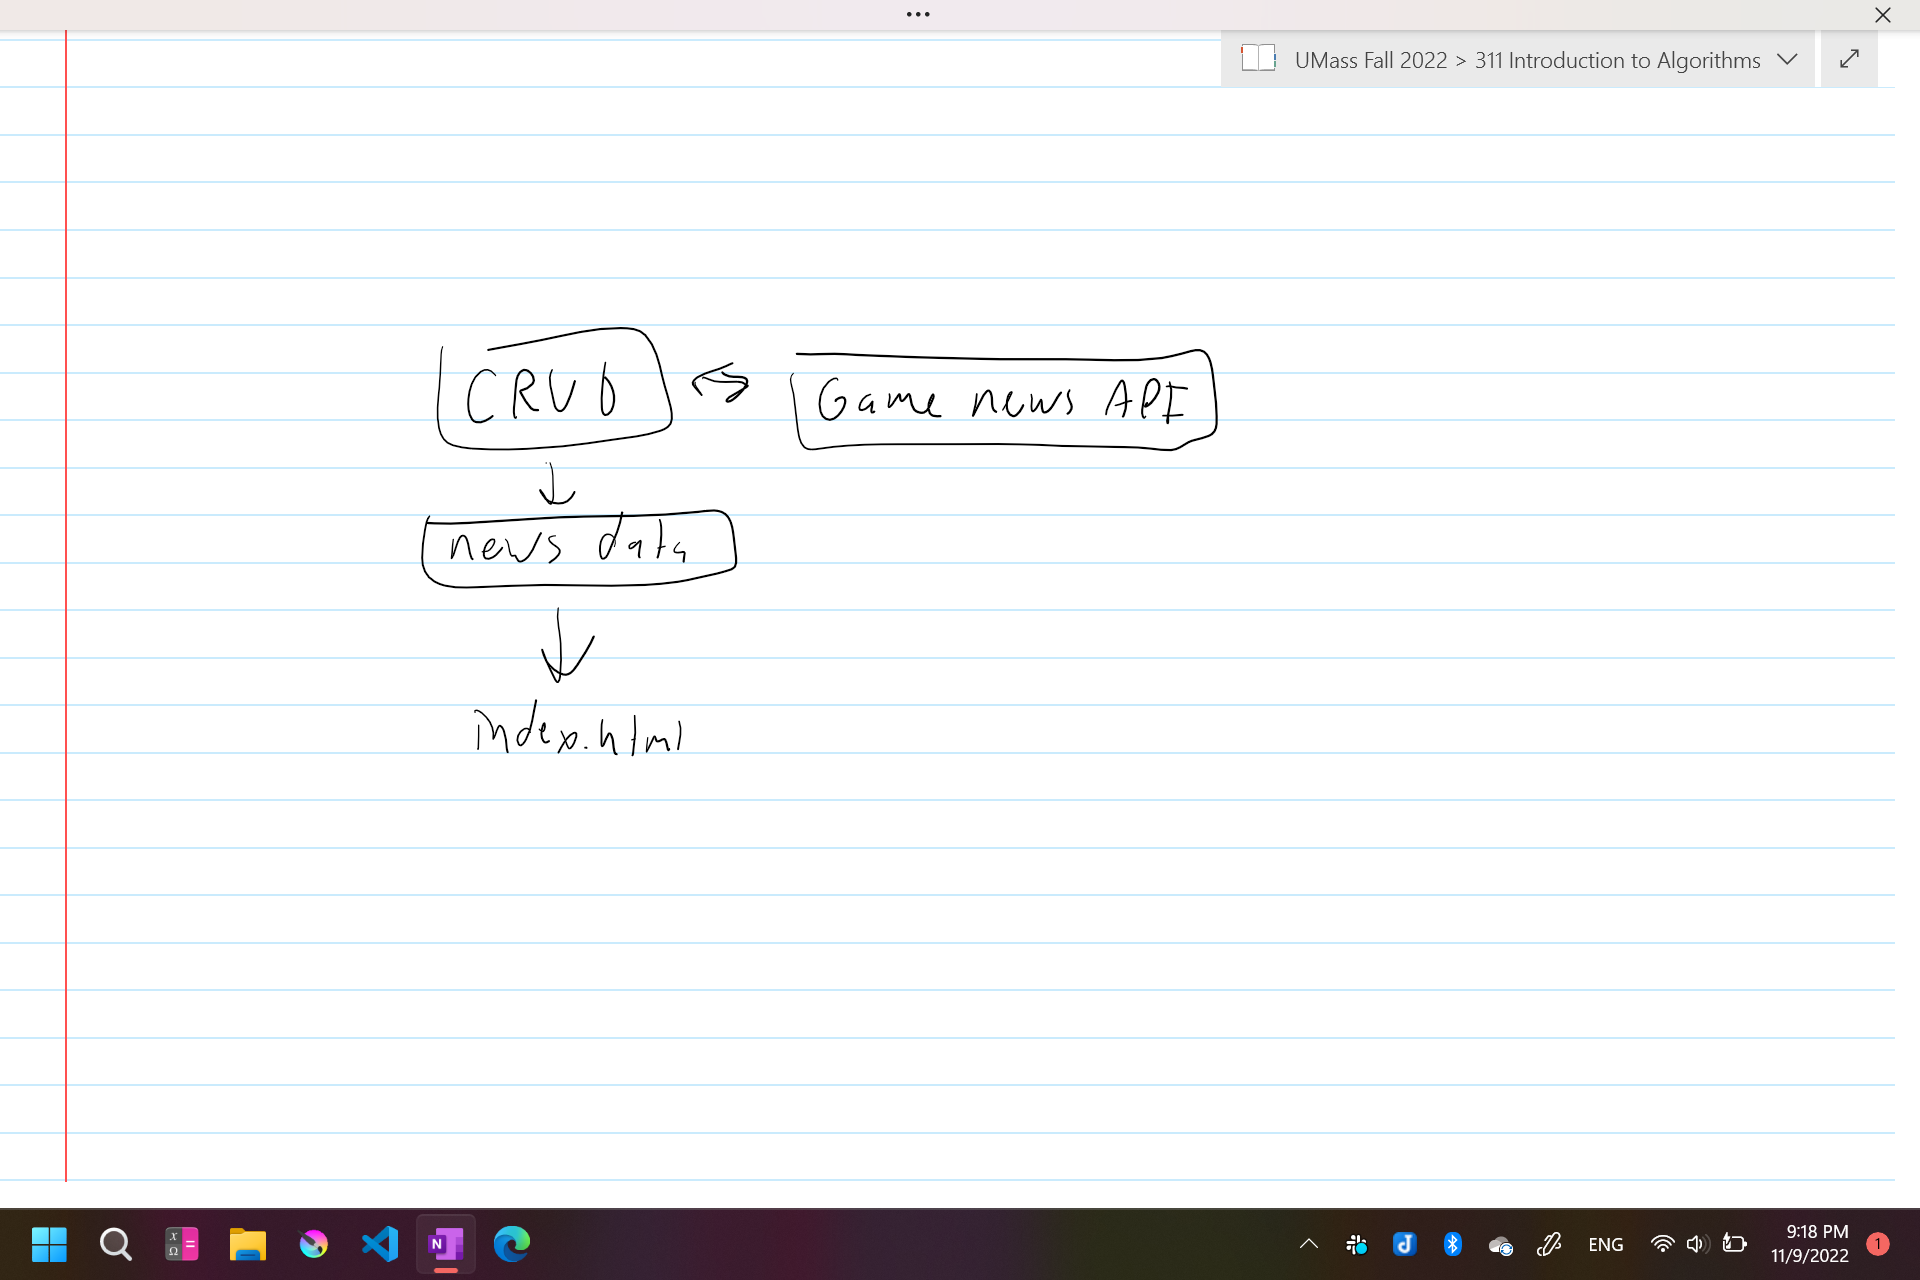 UMass Fall 2022 > 311 Introduction to Algorithms
CRUD
Game news API
news data
index.html
ENG
9:18 PM
11/9/2022
1